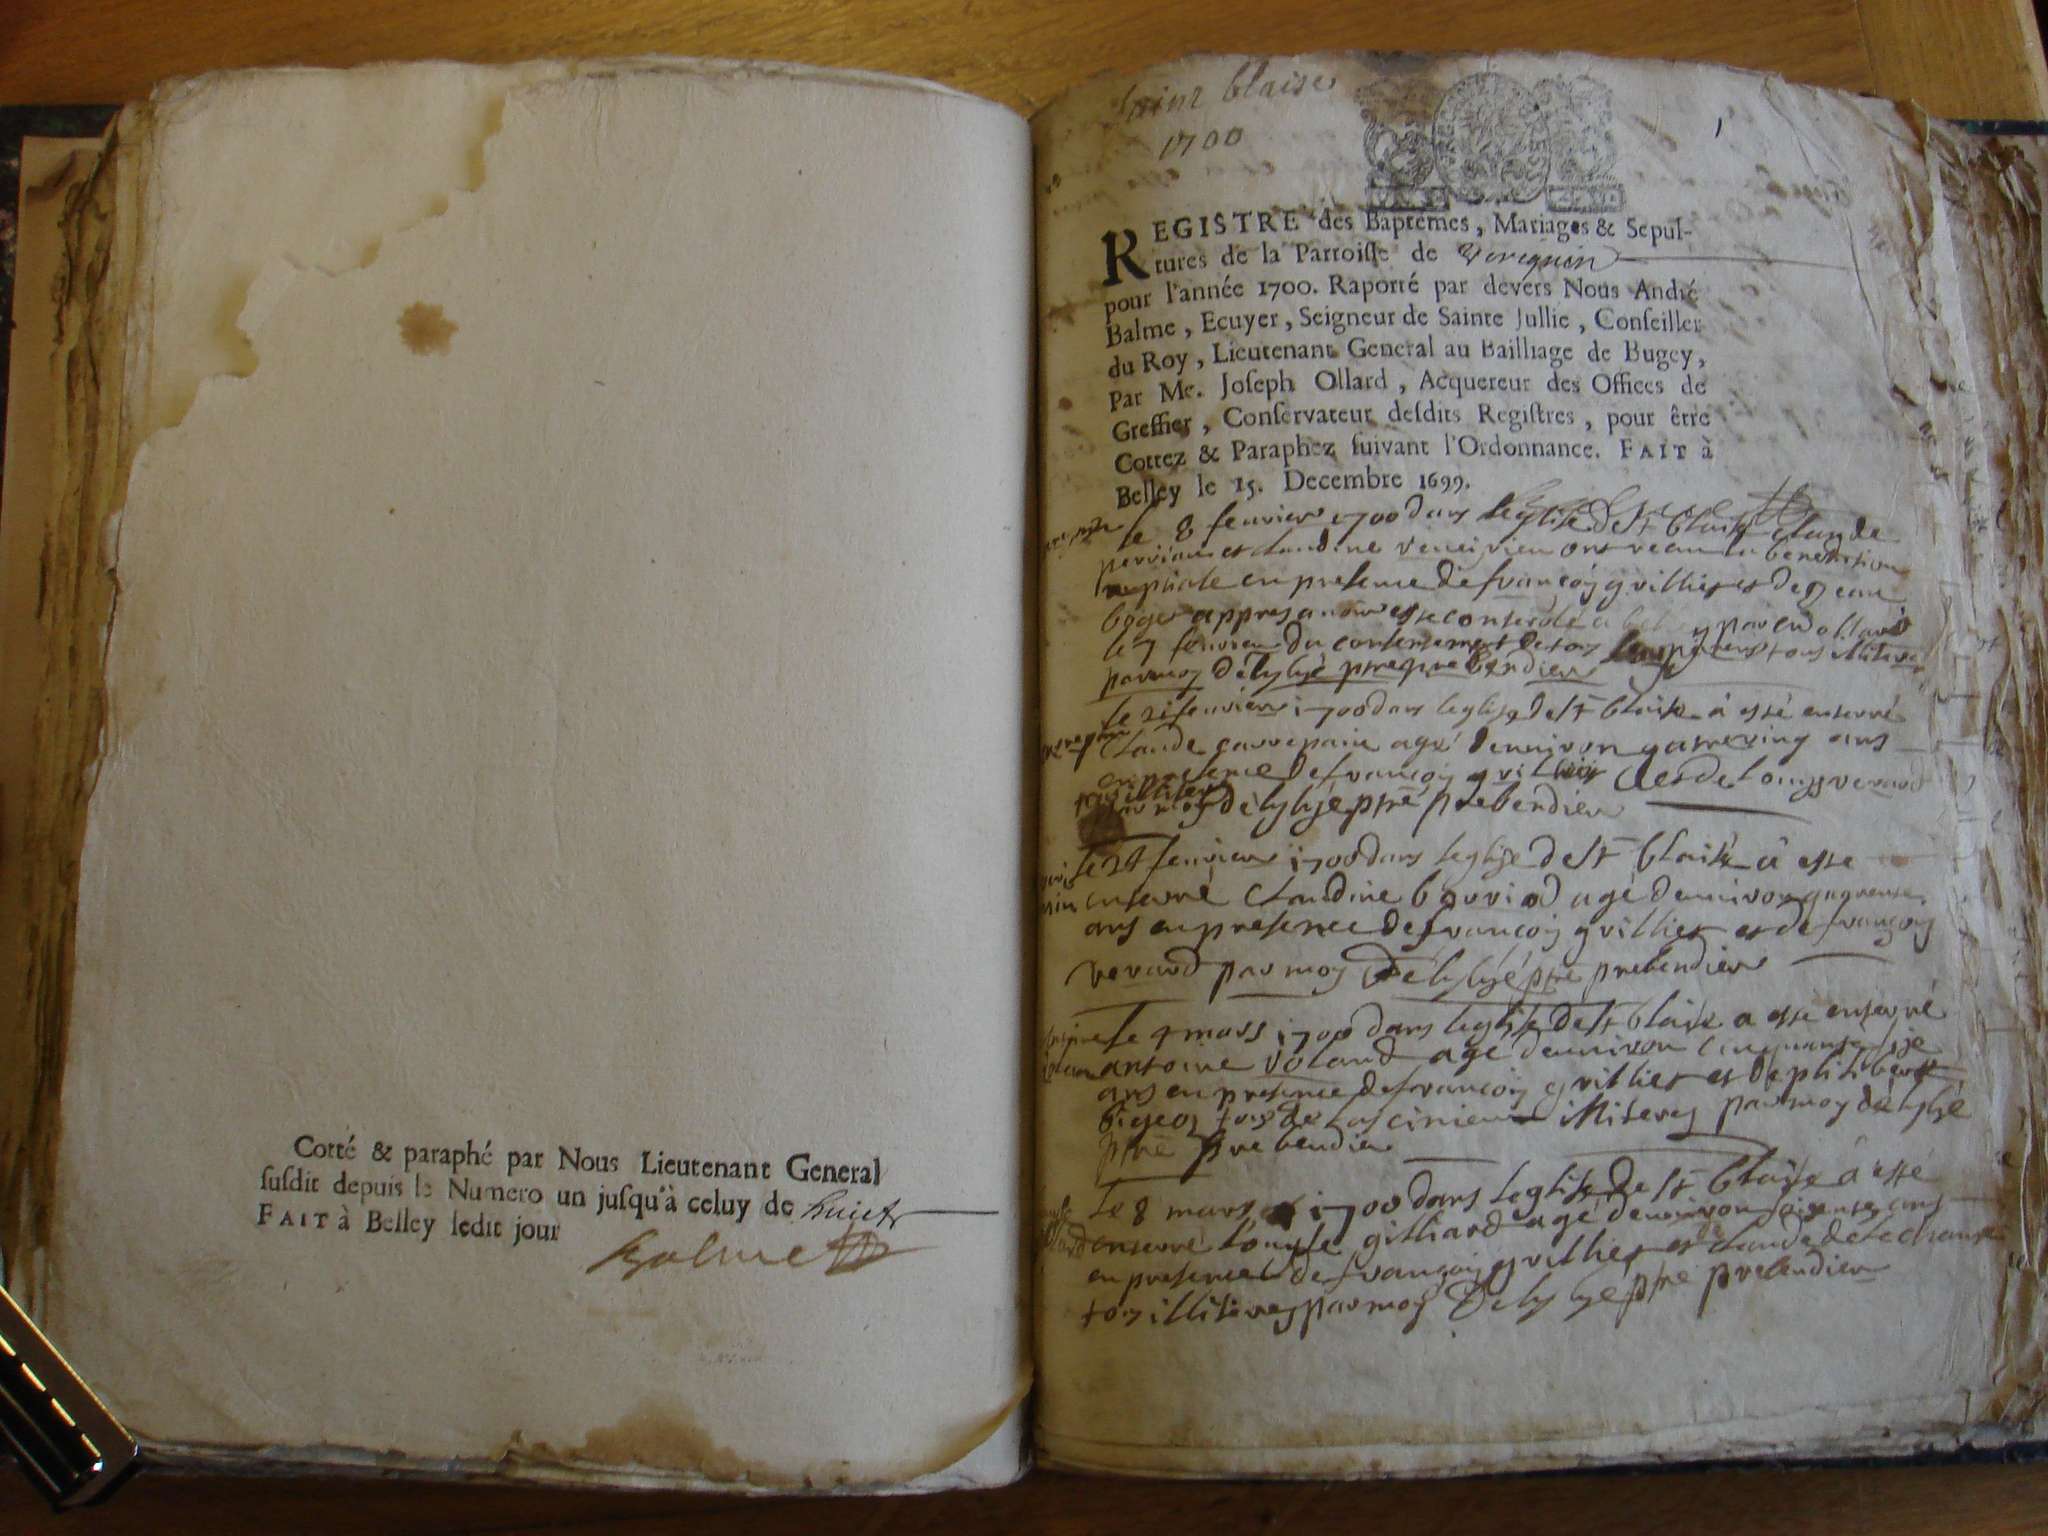 Cotté & paraphé par Nous Lieutenant General
susdit depuis le Numero un jusqu'à celuy de huict
FAIT à Belley ledit jour
Balme
Saint blaise
1700
1
REGISTRE des Baptêmes, Mariages & Sepul-
tures de la Parroisse de
pour l'année 1700. Raporté par devers Nous André
Balme, Ecuyer, Seigneur de Sainte Jullie, Conseiller
du Roy, Lieutenant General au Bailliage de Bugey,
Par Me. Joseph Ollard, Acquereur des Offices de
Greffier, Conservateur desdits Registres, pour être
Cottez & Paraphez suivant l'Ordonnance. FAIT à
Belley le 15. Decembre 1699.
le 8 feuvier 1700 dans leglise de st blaise Claude
et Claudine ont receu la benediction
nuptiale en presence de françois grillier et de Jean
boger appres avoir esse controlé a par ollard
le 7 feuvrier du consentement de tous tous illiteres
par moy prebendier
le 21 feuvier 1700 dans leglise de st blaise a esté enterré
Claude carrepaire agé denviron quatreving ans
en presence de françois grillier et de louys verard
tous illiteres
par moy ptre prebendier
le 24 feuvier 1700 dans leglise de st blaise a esse
enterré Claudine bouriod agé denviron quarente
ans en presence de françois grillier et de françois
verard par moy ptre prebendier
le 4 mars 1700 dans leglise de st blaise a esté enterré
antoine voland agé denviron cinquante six
ans en presence de françois grillier et de philibert
bigeos tous de illiteres par moy
ptre prebendier
le 8 mars 1700 dans leglise de st blaise a esté
enterré louyse gilliard agé denviron soixente ans
en presence de françois grillier et de claude
tous illiteres par moy ptre prebendier